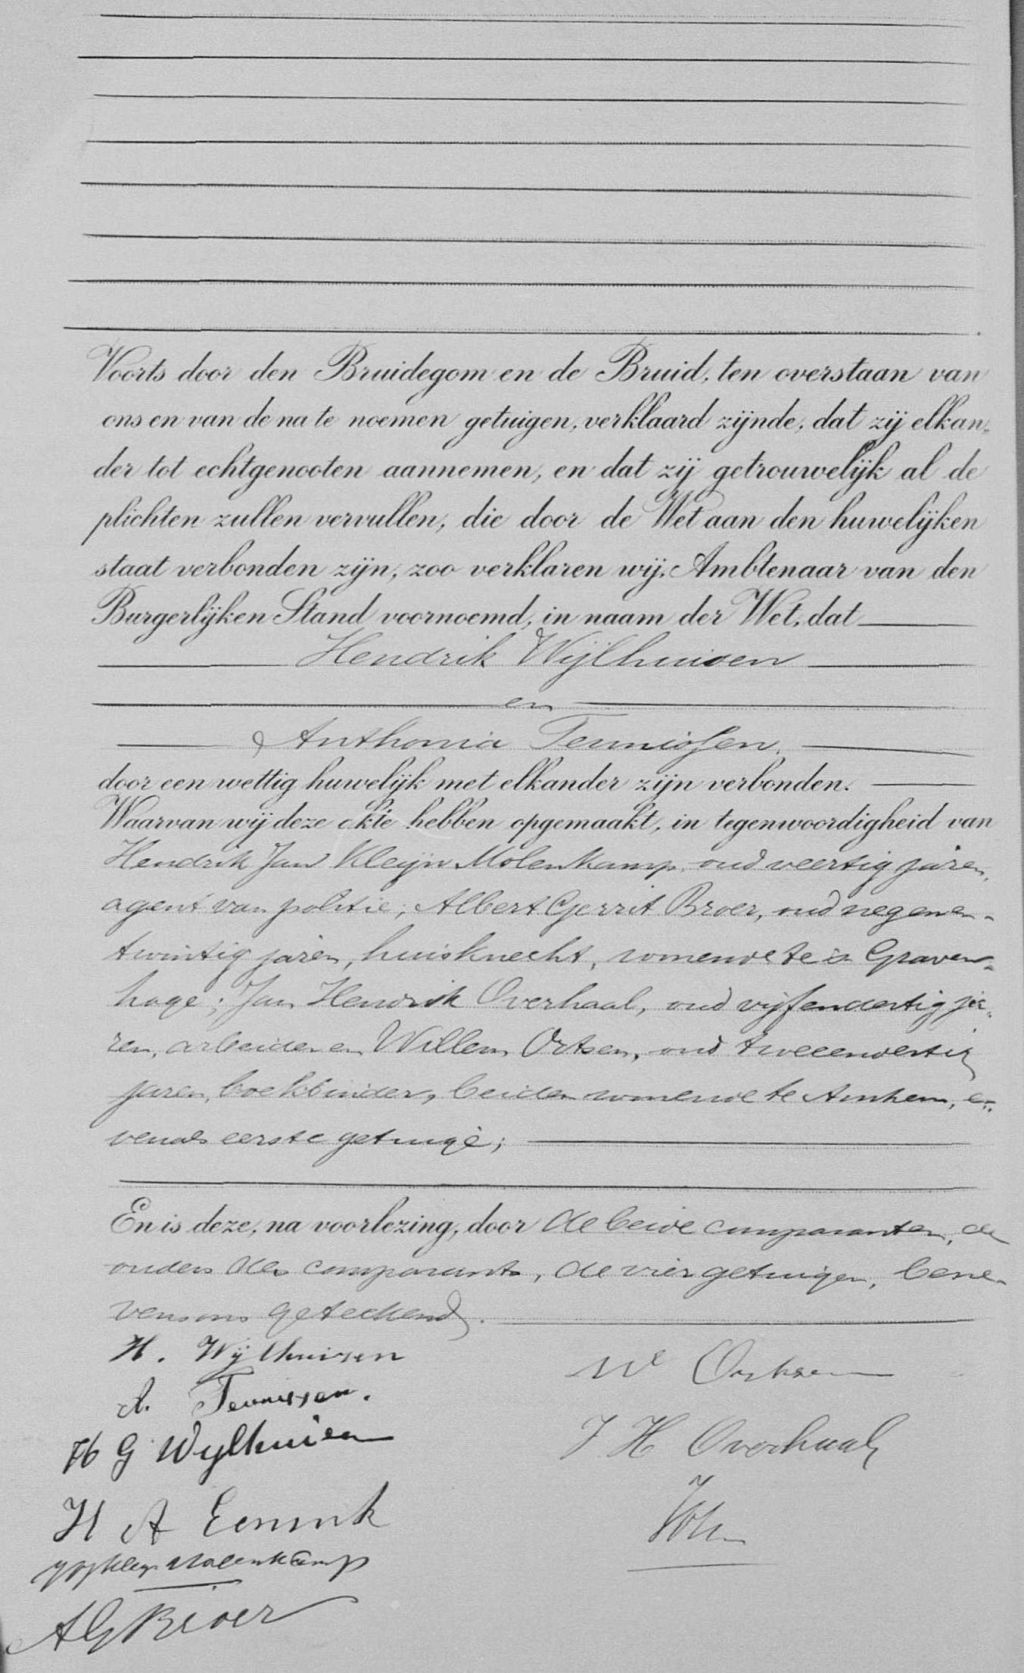 Voorts door den Bruidegom en de Bruid, ten overstaan van
ons en van de na te noemen getuigen, verklaard zijnde, dat zij elkan-
der tot echtgenooten aannemen, en dat zij getrouwelijk al de
plichten zullen vervullen, die door de Wet aan den huwelijken
staat verbonden zijn, zoo verklaren wij, Ambtenaar van den
Burgerlijken Stand voornoemd, in naam der Wet, dat
Hendrik Wijlhuisen
en
Anthonia Teunissen,
door een wettig huwelijk met elkander zijn verbonden.
Waarvan wij deze akte hebben opgemaakt, in tegenwoordigheid van
Hendrik Jan Kleijn Molenkamp, oud veertig jaren,
agent van politie, Albert Gerrit Broer, oud negenen-
twintig jaren, huisknecht, wonende te 's Graven-
hage; Jan Hendrik Overhaal, oud vijfendertig ja-
ren, arbeider en Willem Ortsen, oud tweeendertig
jaren, boekbinder, beiden wonende te Arnhem, e-
venals eerste getuige;
En is deze, na voorlezing, door de beide comparanten, de
ouders des comparants, de vier getuigen, bene-
vens ons geteekend.
H. Wijlhuizen
A. Teunissen.
H G Wijlhuisen
H A Eenink
HJ Kleijn Molenkamp
A G Broer
W
J H Overhaal